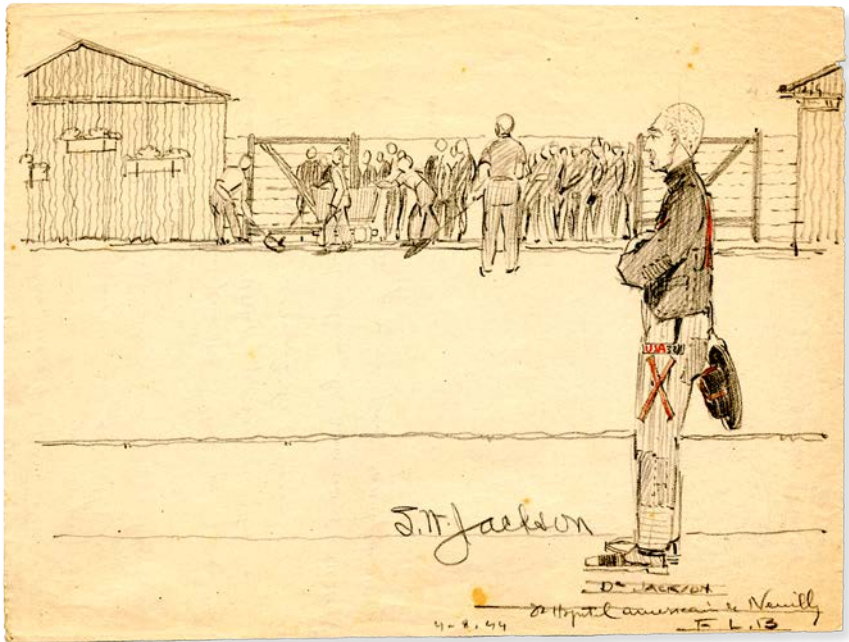 USA
S.W. Jackson
Dr JACKSON
Hopital americain de Neuilly
4-8.44
F L. B